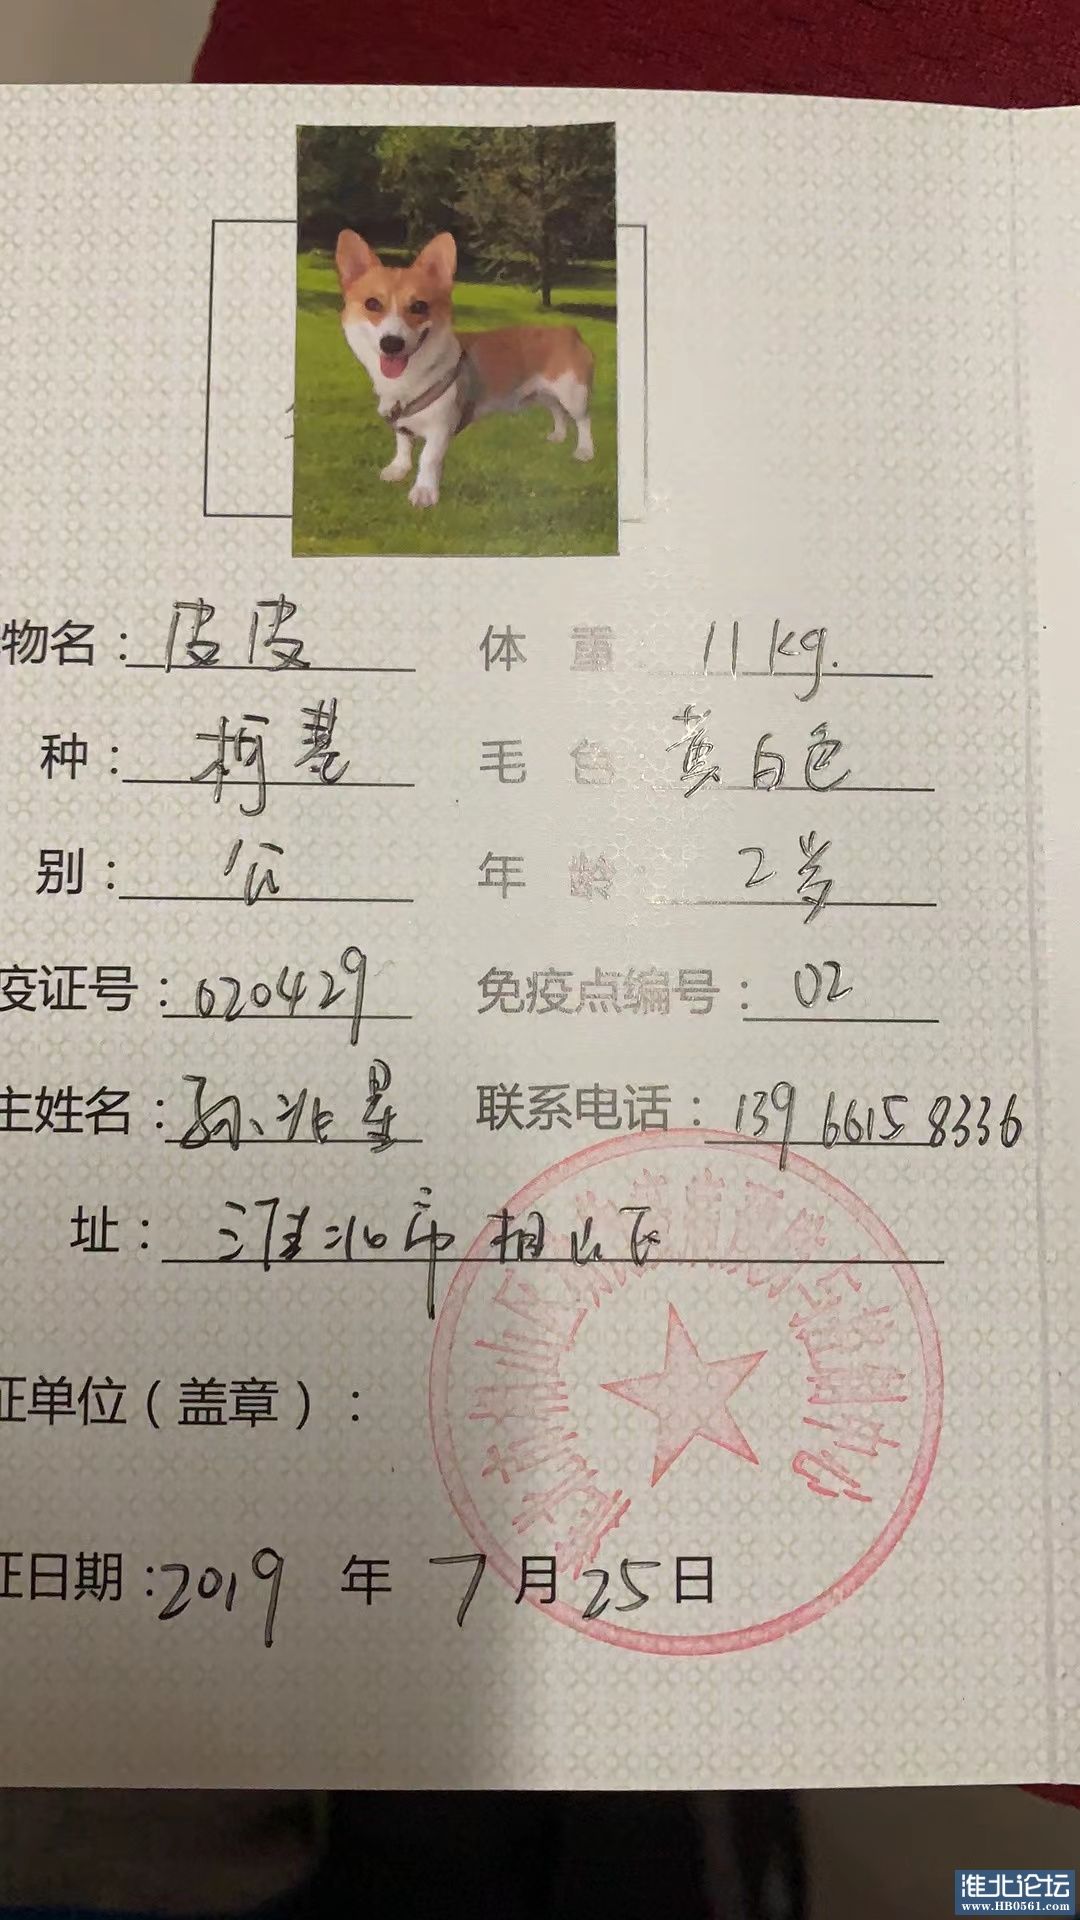 物名：皮皮 体重：11kg.
种：柯基 毛色：黄白色
别：公 年龄：2岁
疫证号：020429 免疫点编号：02
主姓名：孙兆星 联系电话：13966158336
址：淮北市相山区
证单位（盖章）：
证日期：2019年7月25日
淮北论坛
www.HB0561.com